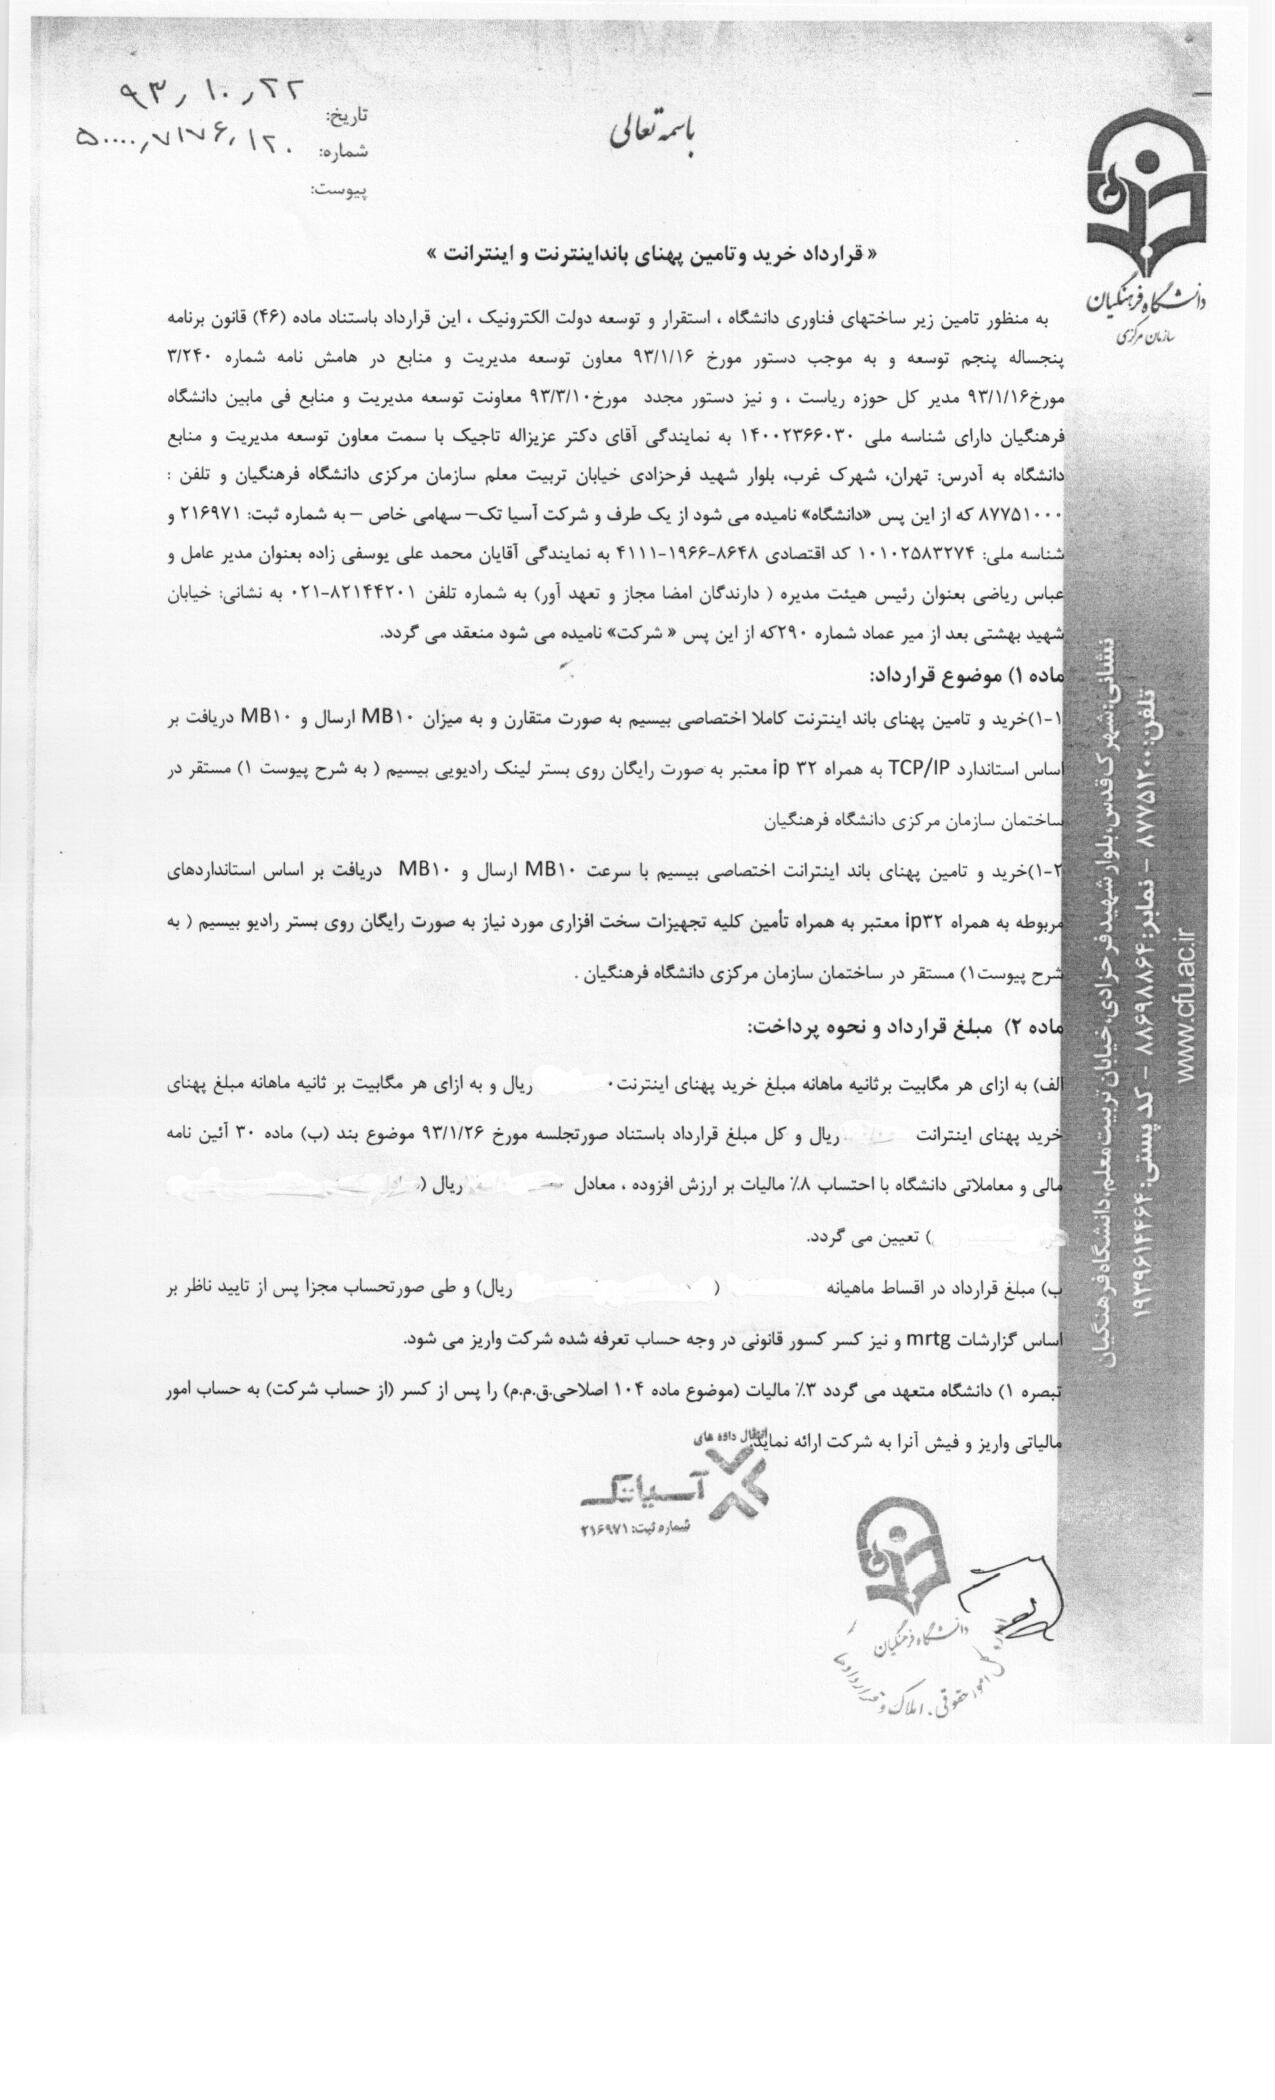 باسمه تعالی
تاریخ: ۹۳/۱۰/۲۲
شماره: ۵۰۰۰۰/۷۱۷۶/۱۲۰
پیوست:
دانشگاه فرهنگیان
سازمان مرکزی
« قرارداد خرید و تامین پهنای باند اینترنت و اینترانت »
به منظور تامین زیر ساختهای فناوری دانشگاه ، استقرار و توسعه دولت الکترونیک ، این قرارداد باستناد ماده (۴۶) قانون برنامه
پنجساله پنجم توسعه و به موجب دستور مورخ ۹۳/۱/۱۶ معاون توسعه مدیریت و منابع در هامش نامه شماره ۳/۲۴۰
مورخ۹۳/۱/۱۶ مدیر کل حوزه ریاست ، و نیز دستور مجدد مورخ۹۳/۳/۱۰ معاونت توسعه مدیریت و منابع فی مابین دانشگاه
فرهنگیان دارای شناسه ملی ۱۴۰۰۲۳۶۶۰۳۰ به نمایندگی آقای دکتر عزیزاله تاجیک با سمت معاون توسعه مدیریت و منابع
دانشگاه به آدرس: تهران، شهرک غرب، بلوار شهید فرحزادی خیابان تربیت معلم سازمان مرکزی دانشگاه فرهنگیان و تلفن :
۸۷۷۵۱۰۰۰ که از این پس «دانشگاه» نامیده می شود از یک طرف و شرکت آسیا تک– سهامی خاص – به شماره ثبت: ۲۱۶۹۷۱ و
شناسه ملی: ۱۰۱۰۲۵۸۳۲۷۴ کد اقتصادی ۸۶۴۸-۱۹۶۶-۴۱۱۱ به نمایندگی آقایان محمد علی یوسفی زاده بعنوان مدیر عامل و
عباس ریاضی بعنوان رئیس هیئت مدیره ( دارندگان امضا مجاز و تعهد آور) به شماره تلفن ۸۲۱۴۴۲۰۱-۰۲۱ به نشانی: خیابان
شهید بهشتی بعد از میر عماد شماره ۲۹۰که از این پس « شرکت» نامیده می شود منعقد می گردد.
ماده ۱) موضوع قرارداد:
۱-۱)خرید و تامین پهنای باند اینترنت کاملا اختصاصی بیسیم به صورت متقارن و به میزان MB۱۰ ارسال و MB۱۰ دریافت بر
اساس استاندارد TCP/IP به همراه ۳۲ ip معتبر به صورت رایگان روی بستر لینک رادیویی بیسیم ( به شرح پیوست ۱) مستقر در
ساختمان سازمان مرکزی دانشگاه فرهنگیان
۱-۲)خرید و تامین پهنای باند اینترانت اختصاصی بیسیم با سرعت MB۱۰ ارسال و MB۱۰ دریافت بر اساس استانداردهای
مربوطه به همراه ip۳۲ معتبر به همراه تأمین کلیه تجهیزات سخت افزاری مورد نیاز به صورت رایگان روی بستر رادیو بیسیم ( به
شرح پیوست۱) مستقر در ساختمان سازمان مرکزی دانشگاه فرهنگیان .
ماده ۲) مبلغ قرارداد و نحوه پرداخت:
الف) به ازای هر مگابیت برثانیه ماهانه مبلغ خرید پهنای اینترنت ریال و به ازای هر مگابیت بر ثانیه ماهانه مبلغ پهنای
خرید پهنای اینترانت ریال و کل مبلغ قرارداد باستناد صورتجلسه مورخ ۹۳/۱/۲۶ موضوع بند (ب) ماده ۳۰ آئین نامه
مالی و معاملاتی دانشگاه با احتساب ۸٪ مالیات بر ارزش افزوده ، معادل ریال (
) تعیین می گردد.
ب) مبلغ قرارداد در اقساط ماهیانه ( ریال) و طی صورتحساب مجزا پس از تایید ناظر بر
اساس گزارشات mrtg و نیز کسر کسور قانونی در وجه حساب تعرفه شده شرکت واریز می شود.
تبصره ۱) دانشگاه متعهد می گردد ۳٪ مالیات (موضوع ماده ۱۰۴ اصلاحی.ق.م.م) را پس از کسر (از حساب شرکت) به حساب امور
مالیاتی واریز و فیش آنرا به شرکت ارائه نماید.
انتقال داده های
آسیاتک
شماره ثبت: ۲۱۶۹۷۱
دانشگاه فرهنگیان
امور حقوقی، املاک و قراردادها
نشانی: شهرک قدس، بلوار شهید فرحزادی، خیابان تربیت معلم، دانشگاه فرهنگیان
تلفن: ۸۷۷۵۱۲۰۰ – نمابر: ۸۸۶۹۸۸۶۴ – کد پستی: ۱۹۳۹۶۱۴۴۶۴
www.cfu.ac.ir